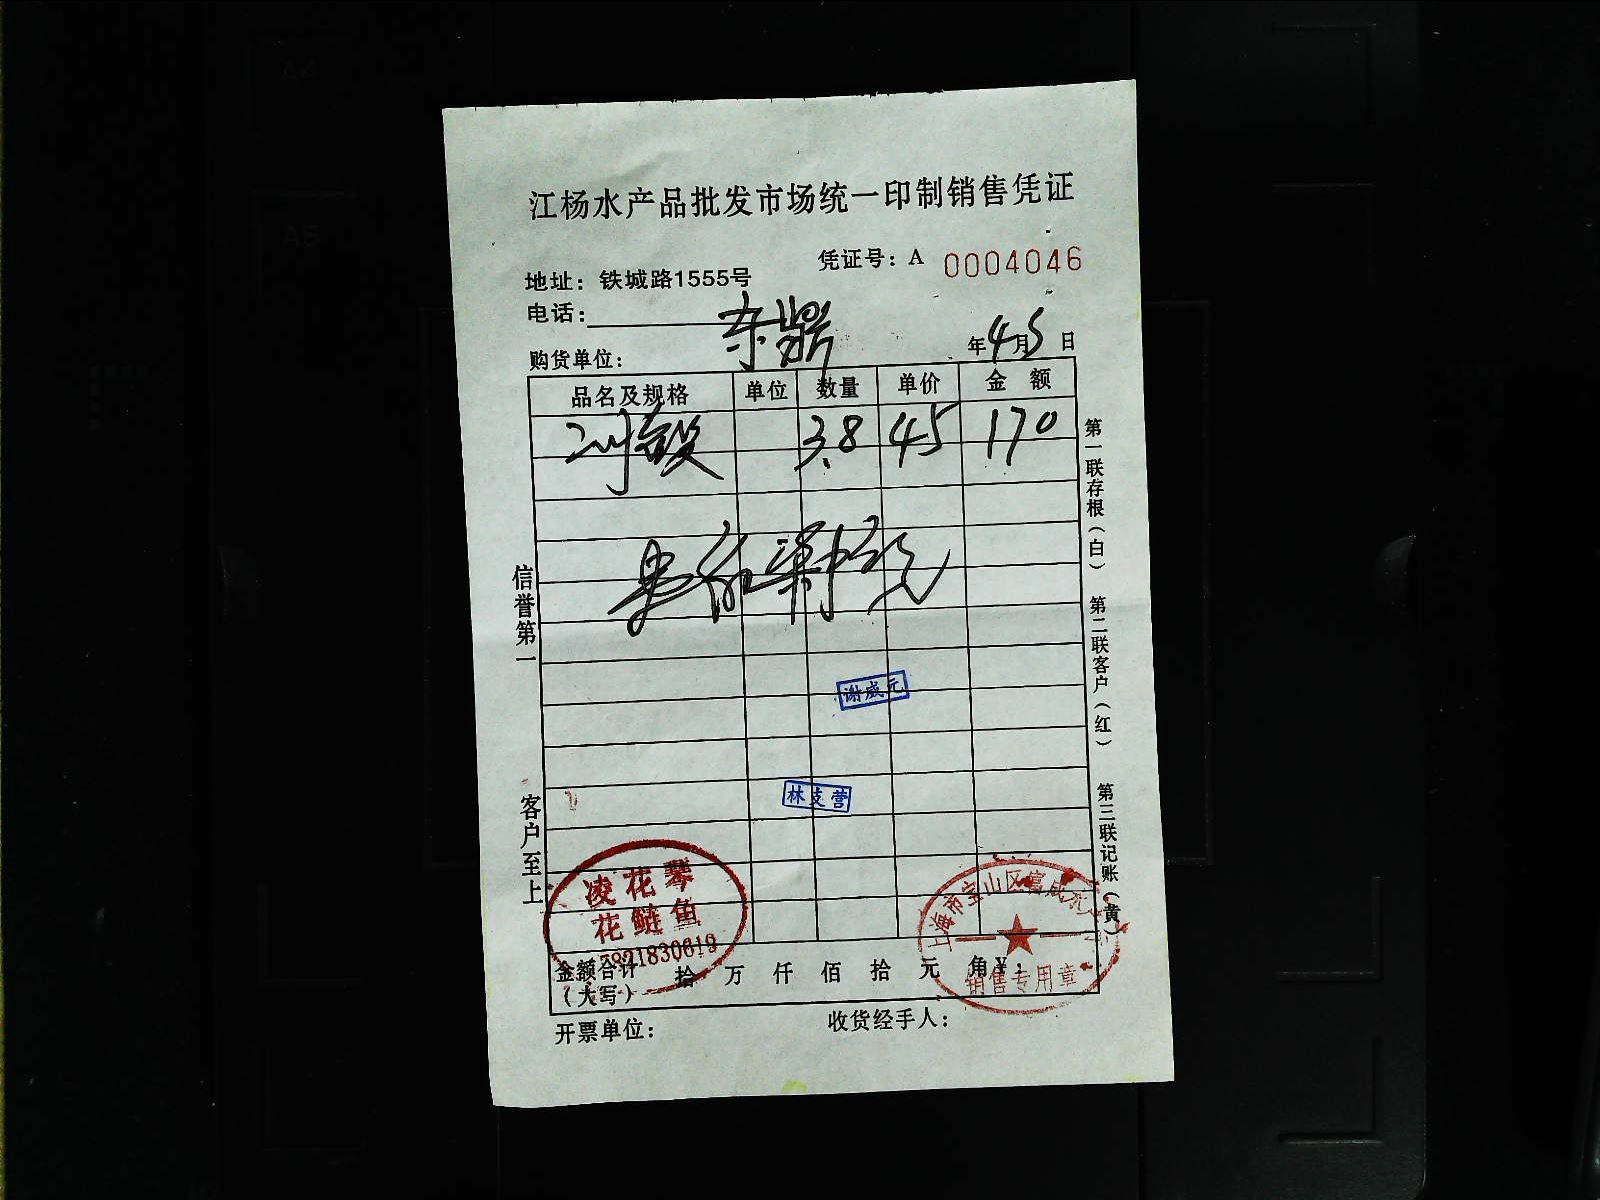 江杨水产品批发市场统一印制销售凭证
凭证号：A 0004046
地址：铁城路1555号
电话：
购货单位： 东鼎
年4月5日
品名及规格 单位 数量 单价 金额
3.8 45 170
信誉第一
客户至上
第一联存根（白） 第二联客户（红） 第三联记账（黄）
谢威元
林支营
凌花琴
花鲢鱼
上海市宝山区富成水
销售专用章
金额合计（大写） 拾 万 仟 佰 拾 元 角 ¥：
开票单位：
收货经手人：